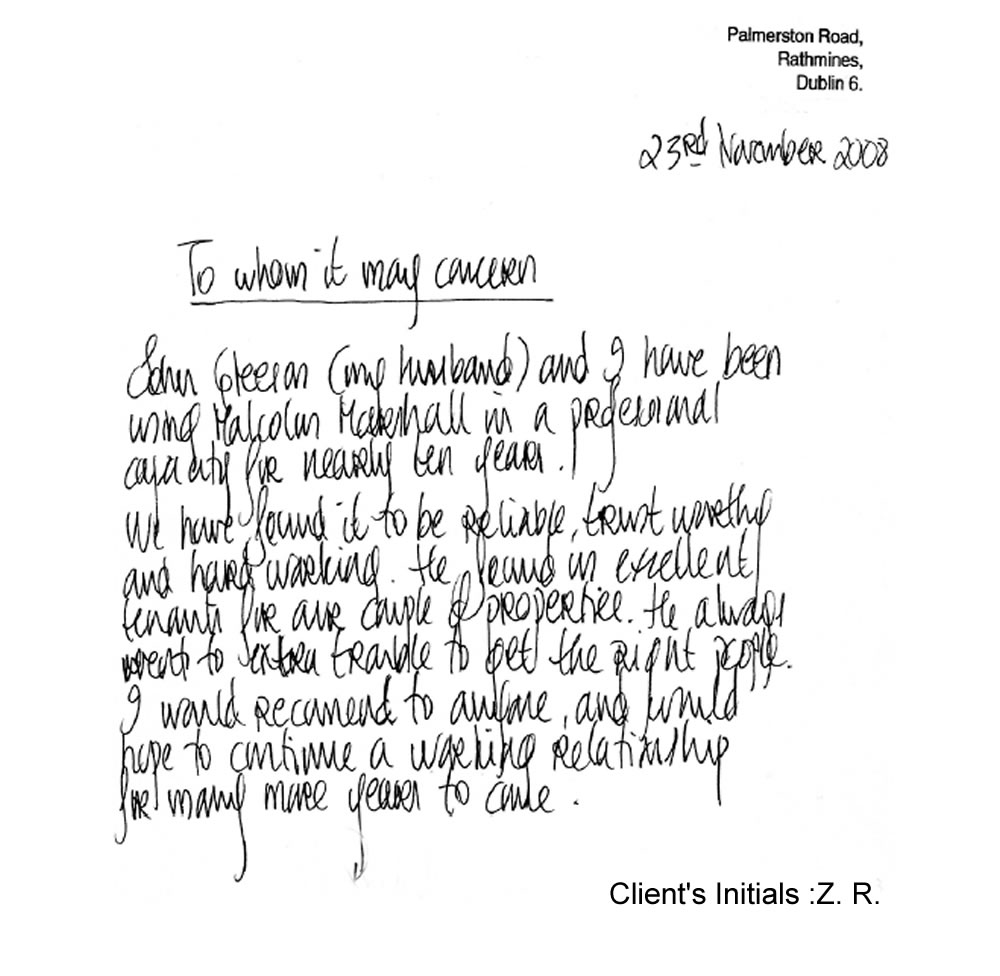 Palmerston Road,
Rathmines,
Dublin 6.
23rd November 2008
To whom it may concern
John Gleeson (my husband) and I have been
using Malcolm Marshall in a professional
capacity for nearly ten years.
We have found it to be reliable, trust worthy
and hard working. He found us excellent
tenants for our couple of properties. He always
went to extra trouble to get the right people.
I would recomend to anyone, and would
hope to continue a working relationship
for many more years to come.
Client's Initials :Z. R.